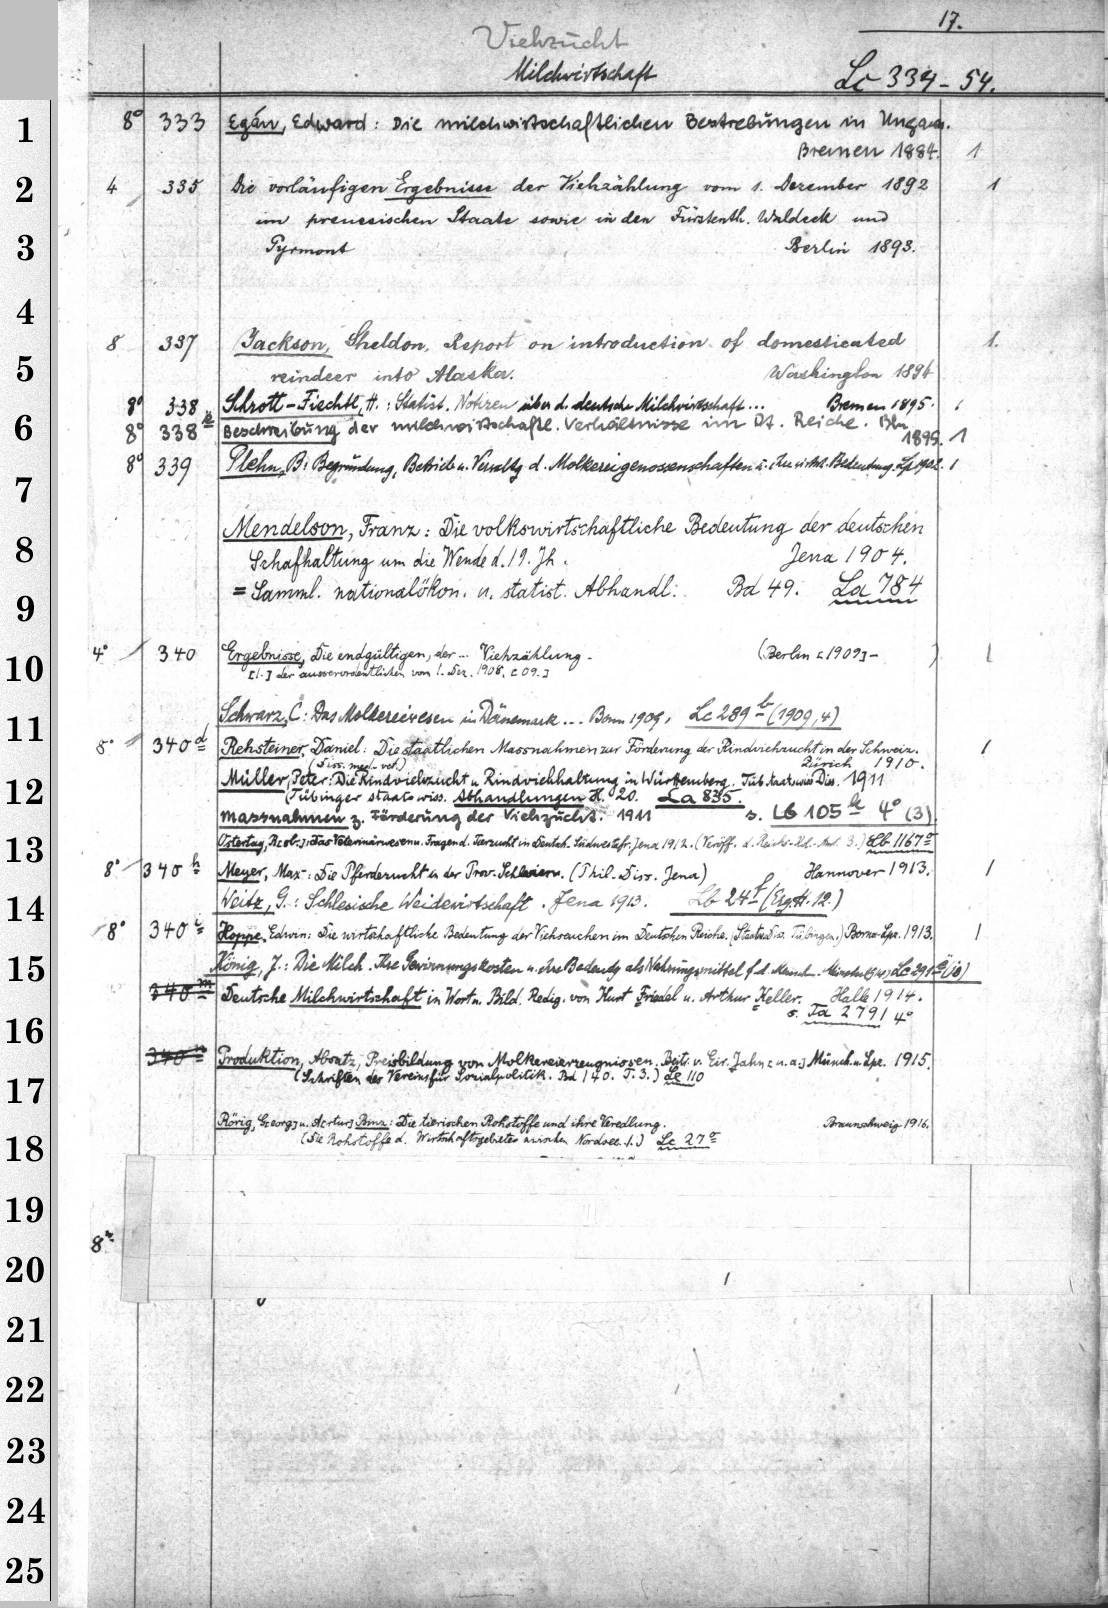 17.
Viehzucht
Milchwirtschaft
Lc 334-54.
1 8° 333 Egán, Edward: Die milchwirtschaftlichen Bestrebungen in Ungarn.
Bremen 1884. 1
2 4 335 Die vorläufigen Ergebnisse der Viehzählung vom 1. Dezember 1892 1
im preussischen Staate sowie in den Fürstenth. Waldeck und
3 Pyrmont Berlin 1893.
4
8 337 Jackson, Sheldon, Report on introduction of domesticated 1.
5 reindeer into Alaska. Washington 1896
8° 338 Schrott-Fiechtl, H.: Statist. Notizen über d. deutsche Milchwirtschaft... Bremen 1895. 1
6 8° 338 Beschreibung der milchwirtschaftl. Verhältnisse im Dt. Reiche. Bln
1899. 1
8° 339 Plehn, B: Begründung, Betrieb u. Verwltg d. Molkereigenossenschaften u. ihre wirtsch. Bedeutung. Lpz 1902. 1
7
Mendelson, Franz: Die volkswirtschaftliche Bedeutung der deutschen
8 Schafhaltung um die Wende d. 19. Jh. Jena 1904.
9 = Samml. nationalökon. u. statist. Abhandl: Bd 49. La 784
4° 340 Ergebnisse, Die endgültigen, der... Viehzählung. (Berlin [1909]- ) 1
10 [1.] der ausserordentlichen vom 1. Dez. 1908. [09.]
11 Schwarz, C: Das Molkereiwesen in Dänemark... Bonn 1909, Lc 289 b (1909,4)
8° 340 d Rehsteiner, Daniel: Die staatlichen Massnahmen zur Förderung der Rindviehzucht in der Schweiz. 1
(Diss. med.-vet.) Zürich 1910.
Müller, Peter: Die Rindviehzucht u. Rindviehhaltung in Württemberg. Tüb. staatswiss Diss. 1911
12 (Tübinger staatswiss. Abhandlungen H. 20. La 835.
Massnahmen z. Förderung der Viehzucht. 1911 s. Lb 105 k 4° (3).
13 Ostertag, Rob.: Das Veterinärwesen u. Fragen d. Tierzucht in Deutsch-Südwestafr. Jena 1912. (Veröff. d. Reichs-Kol.-Amt. 3.) Lb 1167
8° 340 h Meyer, Max: Die Pferdezucht in der Prov. Schlesien. (Phil.-Diss. Jena) Hannover 1913. 1
14 Weitz, G.: Schlesische Weidewirtschaft. Jena 1913. Lb 24 f (Erg.H. 12.)
8° 340 i Hoppe, Edwin: Die wirtschaftliche Bedeutung der Viehseuchen im Deutschen Reiche. (Staatsw. Diss. Tübingen.) Borna-Lpz. 1913. 1
15 König, J.: Die Milch. Ihre Gewinnungskosten u. ihre Bedeutg als Nahrungsmittel f. d. Mensch.
340 m Deutsche Milchwirtschaft in Wort u. Bild. Redig. von Kurt Friedel u. Arthur Keller. Halle 1914.
s. Ta 2791 4°
16
340 n Produktion, Absatz, Preisbildung von Molkereierzeugnissen. Beitr. v. Eir. Jahn [u. a.] Münch. u. Lpz. 1915.
17 (Schriften des Vereins für Sozialpolitik. Bd 140. T. 3.) Le 110
Rörig, Georg u. Arthur Binz: Die tierischen Rohstoffe und ihre Veredlung. Braunschweig 1916.
18 (Die Rohstoffe d. Wirtschaftsgebietes zwischen Nordsee. 1.) Lc 27
19
8°
20 1
21
22
23
24
25